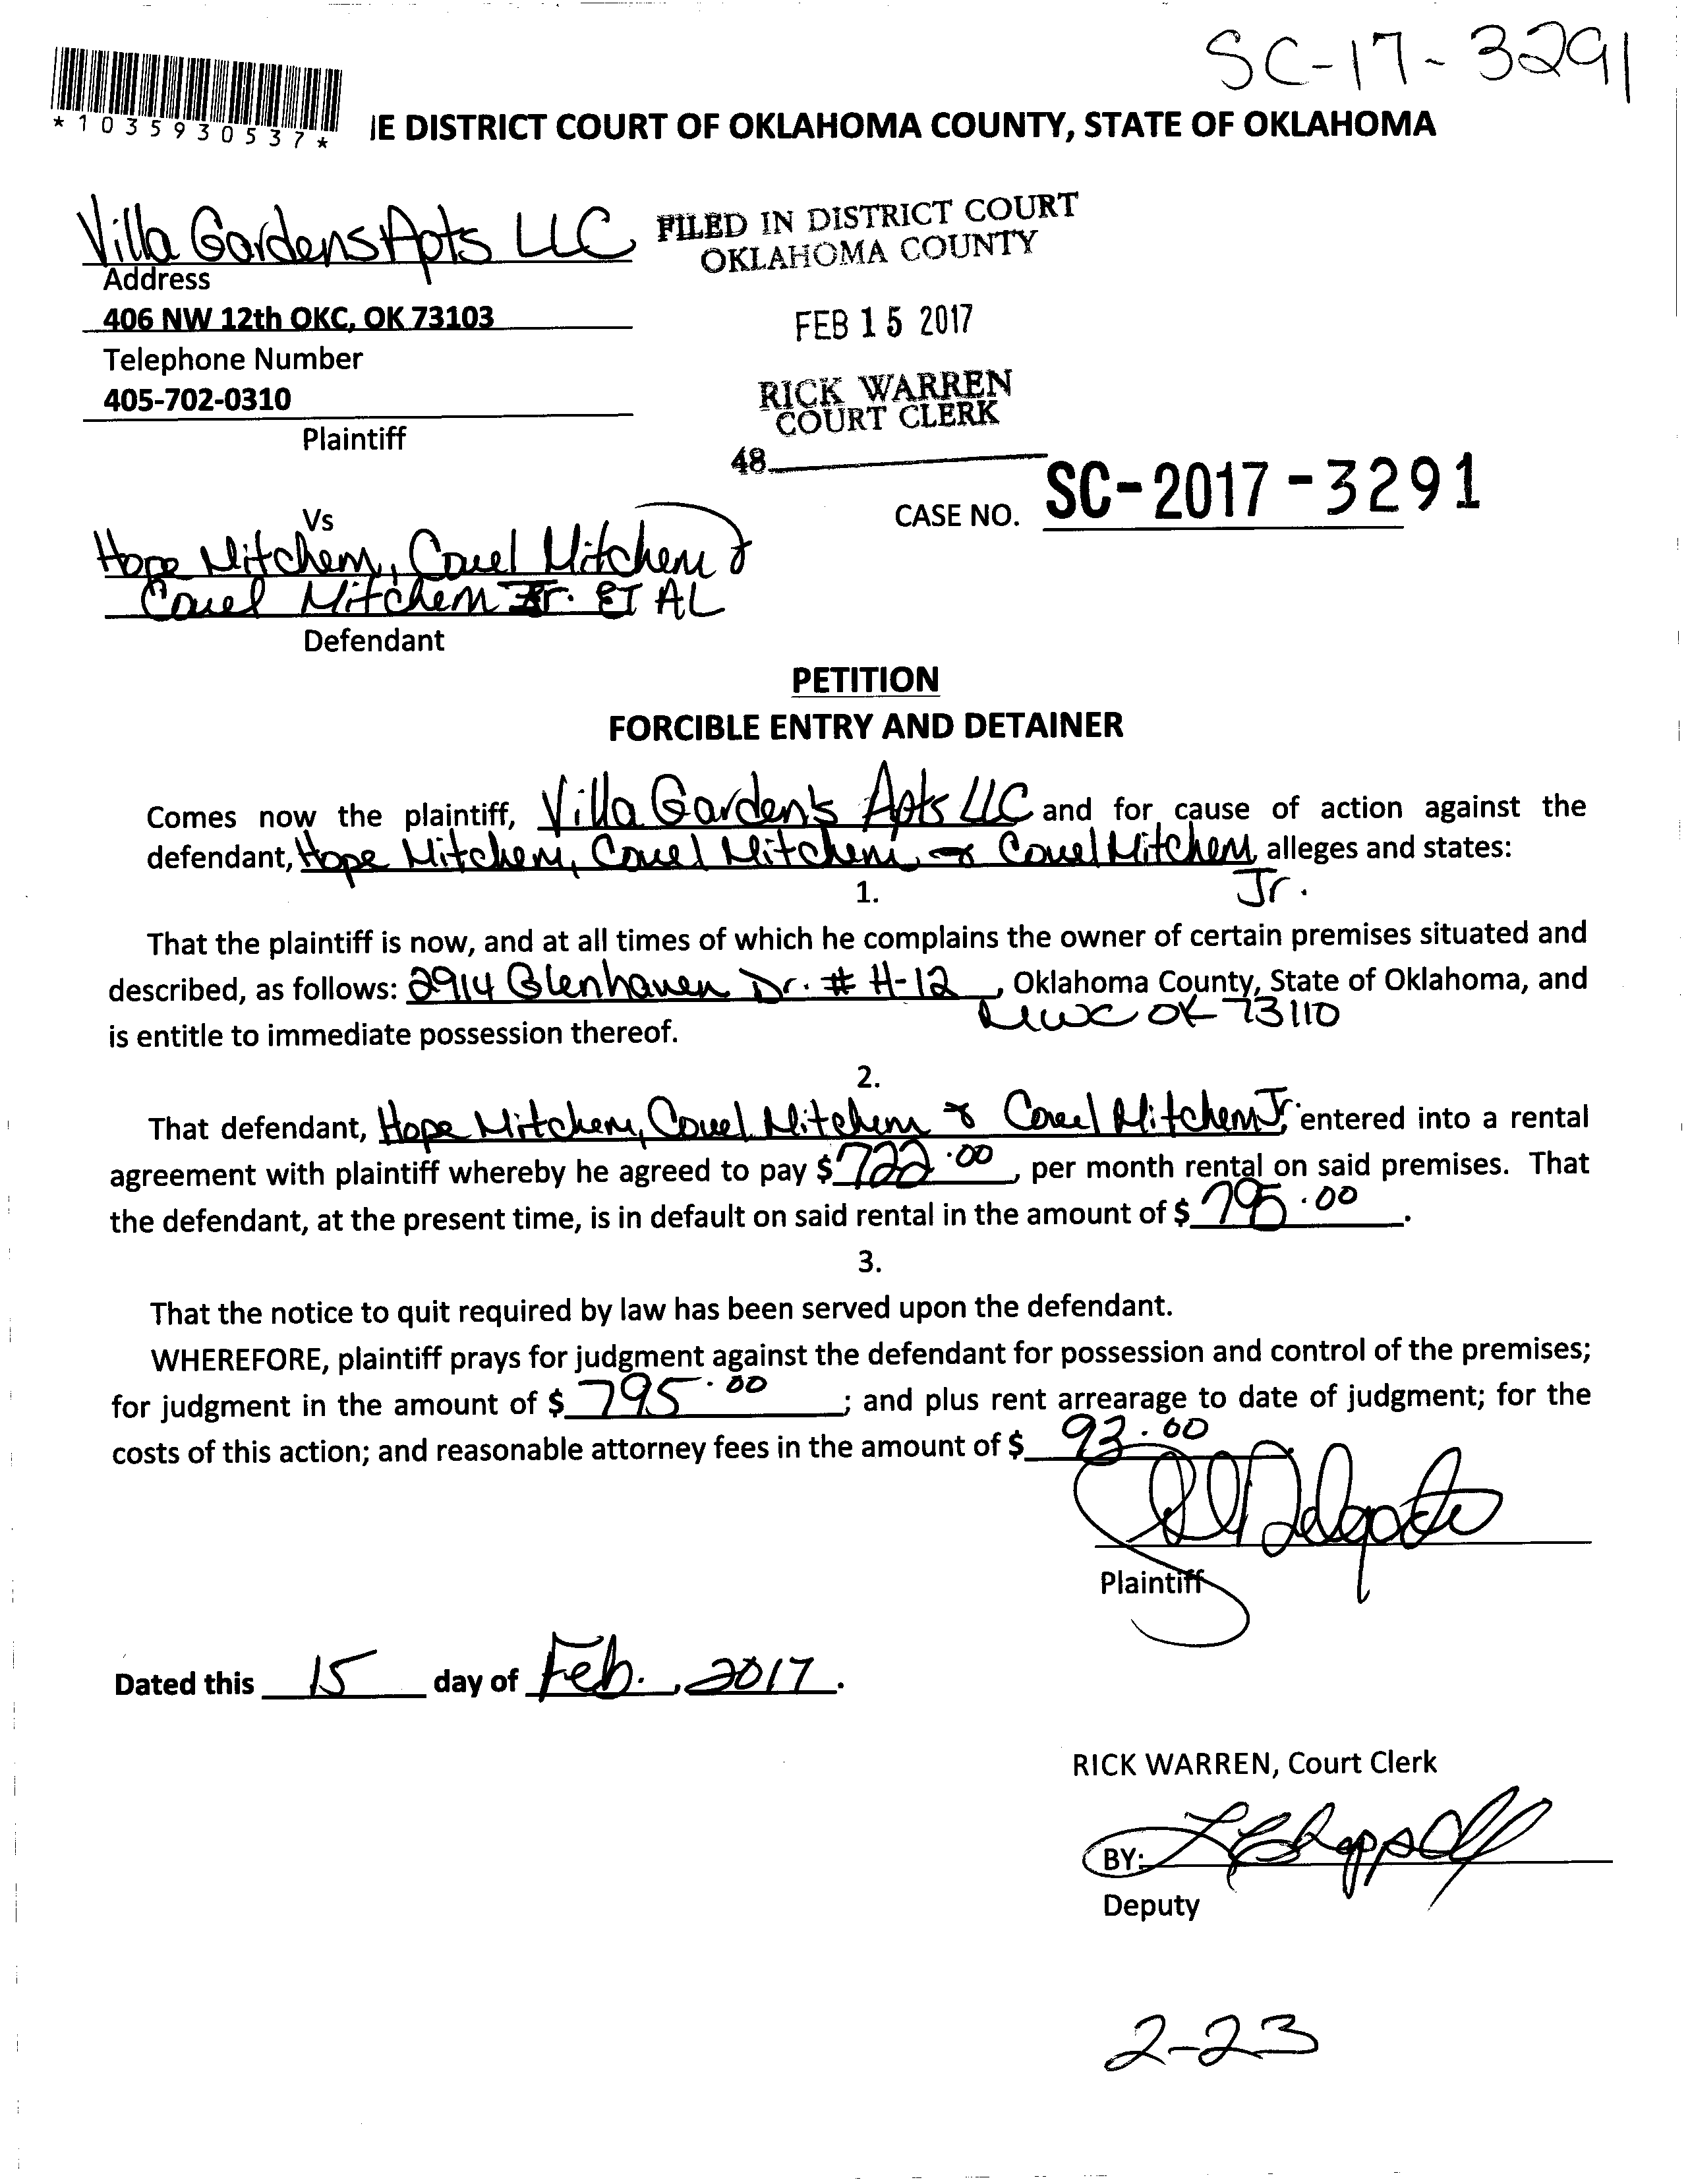 SC-17-3291
*1035930537*
IE DISTRICT COURT OF OKLAHOMA COUNTY, STATE OF OKLAHOMA
Villa Gardens Apts LLC
FILED IN DISTRICT COURT
OKLAHOMA COUNTY
Address
406 NW 12th OKC, OK 73103
FEB 15 2017
Telephone Number
405-702-0310
RICK WARREN
COURT CLERK
Plaintiff
48
CASE NO. SC-2017-3291
Vs
Hope Mitchem, Covel Mitchem &
Covel Mitchem Jr. ET AL
Defendant
PETITION
FORCIBLE ENTRY AND DETAINER
Comes now the plaintiff, Villa Gardens Apts LLC and for cause of action against the
defendant, Hope Mitchem, Covel Mitchem, & Covel Mitchem alleges and states:
Jr.
1.
That the plaintiff is now, and at all times of which he complains the owner of certain premises situated and
described, as follows: 2914 Glenhaven Dr. # H-12, Oklahoma County, State of Oklahoma, and
MWC OK 73110
is entitle to immediate possession thereof.
2.
That defendant, Hope Mitchem, Covel Mitchem & Covel Mitchem Jr. entered into a rental
agreement with plaintiff whereby he agreed to pay $ 722.00, per month rental on said premises. That
the defendant, at the present time, is in default on said rental in the amount of $ 795.00.
3.
That the notice to quit required by law has been served upon the defendant.
WHEREFORE, plaintiff prays for judgment against the defendant for possession and control of the premises;
for judgment in the amount of $ 795.00; and plus rent arrearage to date of judgment; for the
costs of this action; and reasonable attorney fees in the amount of $ 93.00
Plaintiff
Dated this 15 day of Feb., 2017.
RICK WARREN, Court Clerk
BY:
Deputy
2-23